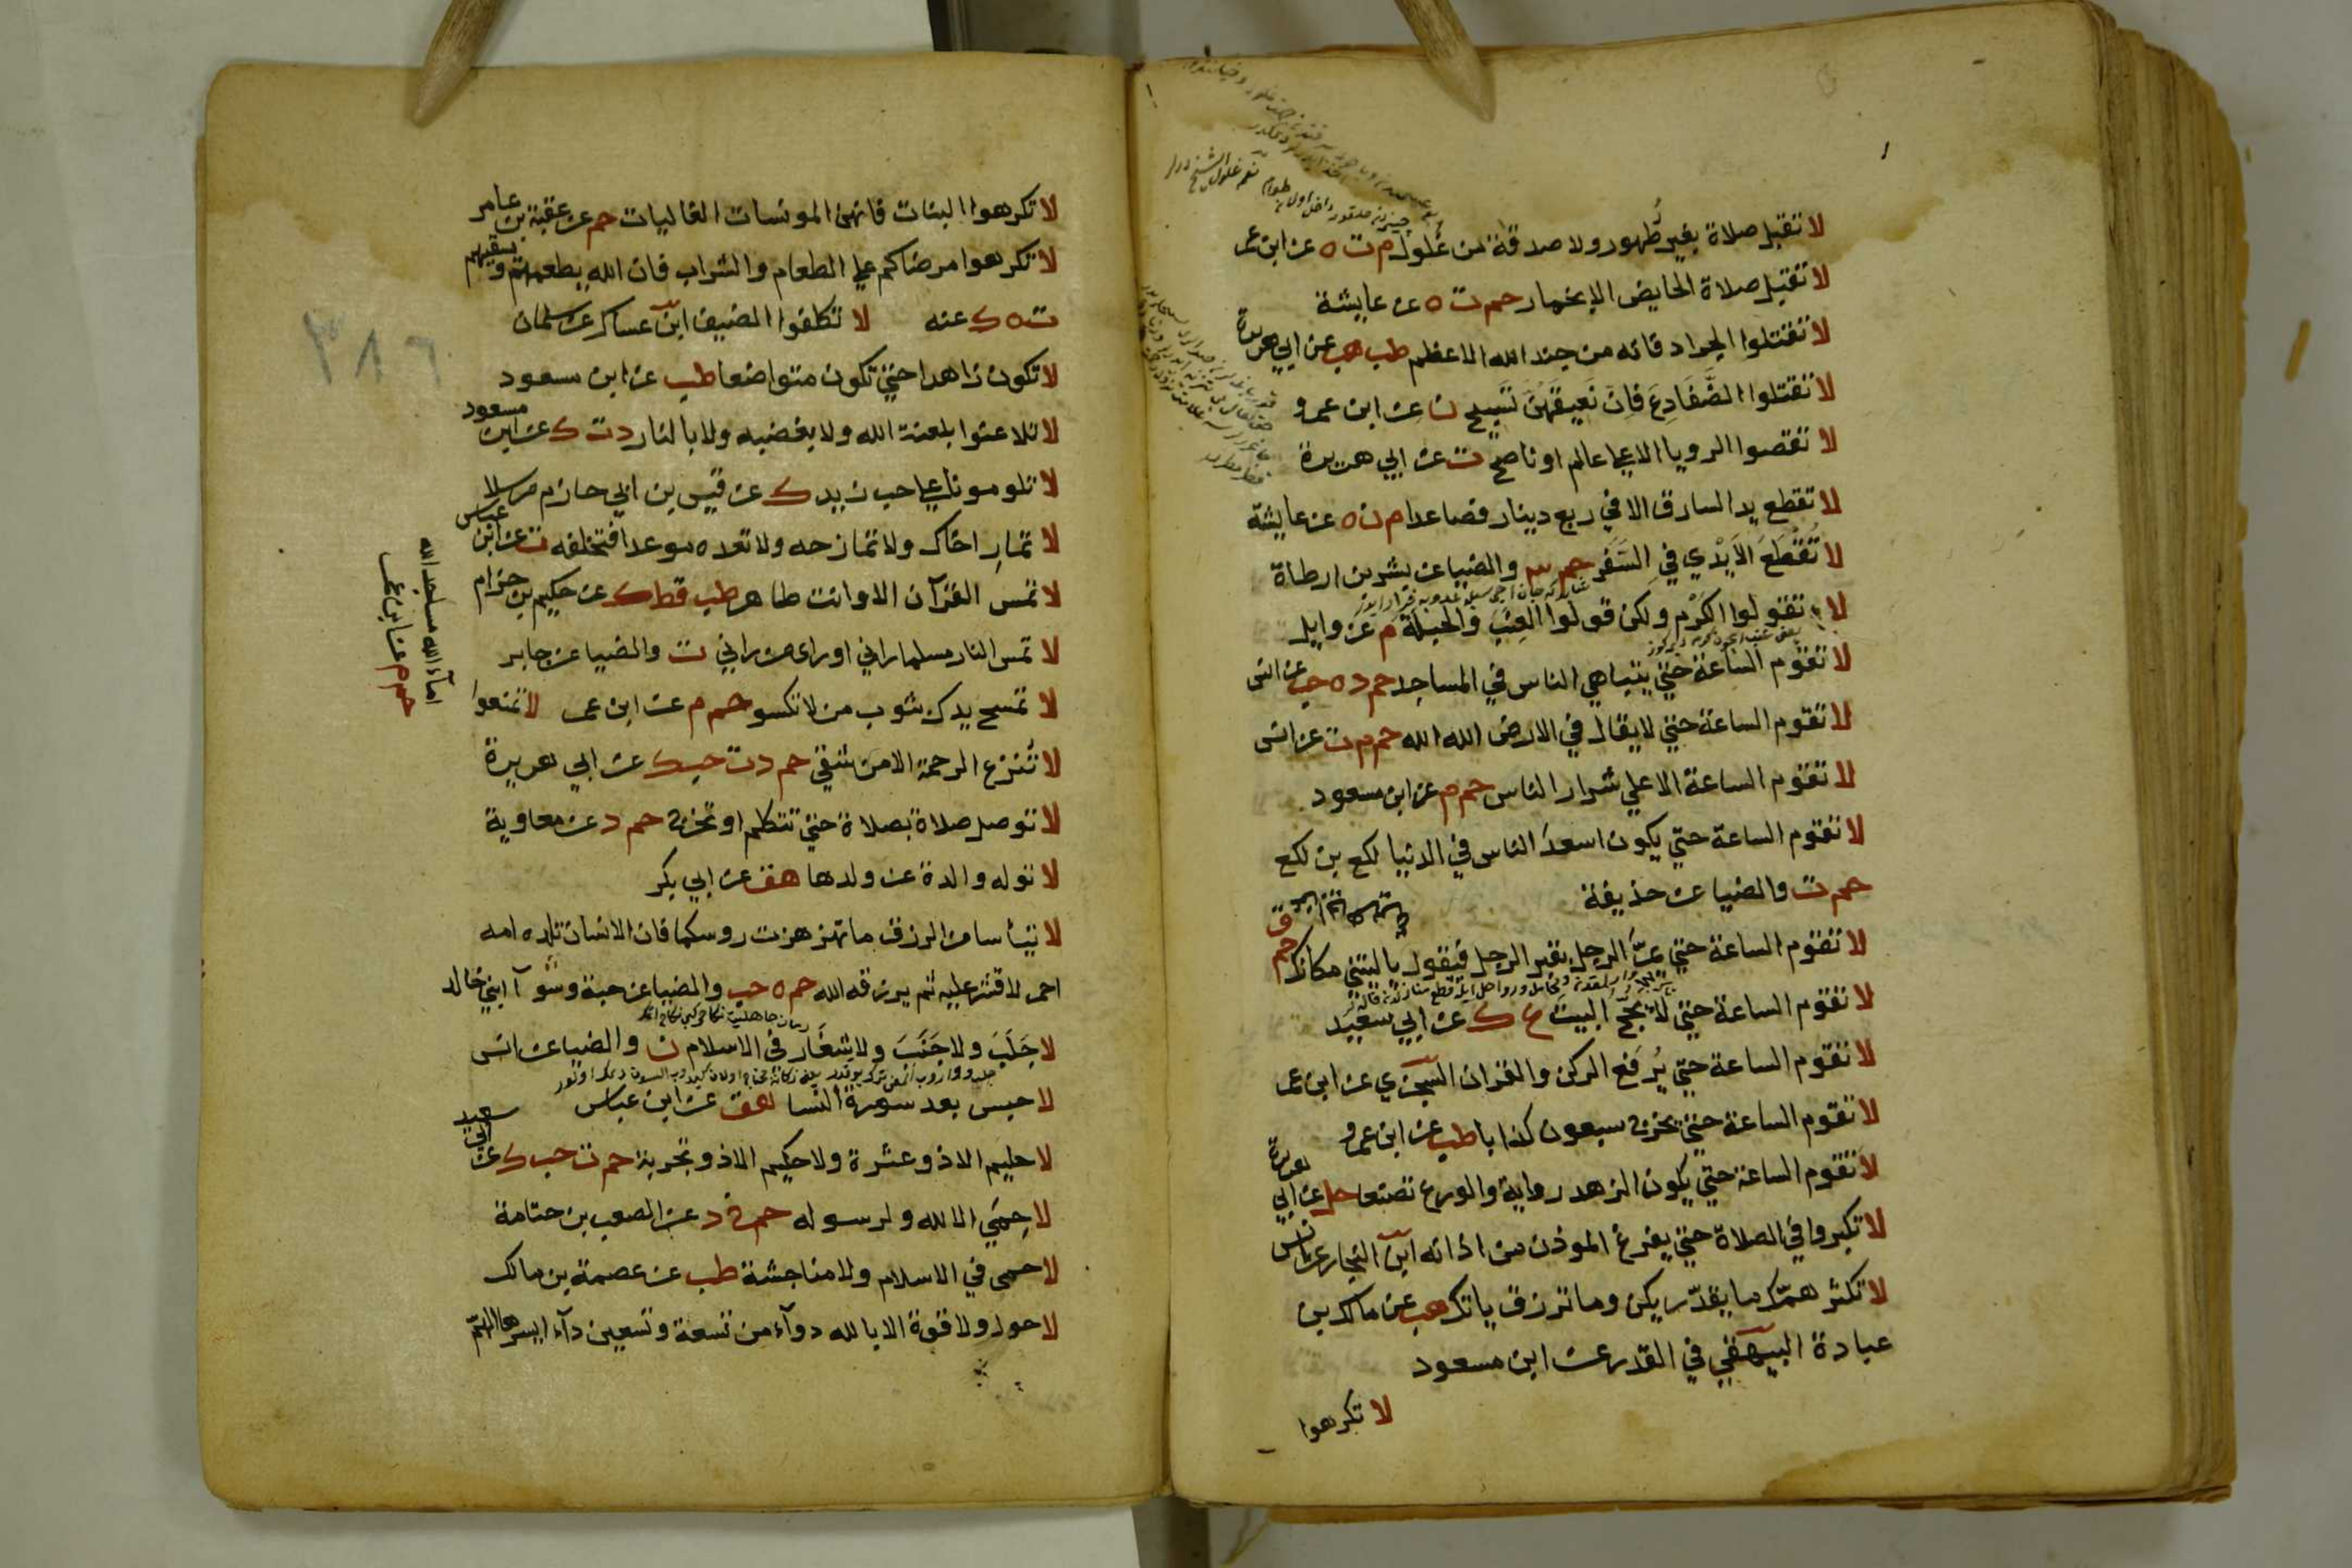 لا تقبل صلاة بغير طُهور ولا صدقة من غُلول م ت ه عن ابن عمر
لا تقبل صلاة الحايض الا بخمار حم ت ه عن عايشة
لا تقتلوا الجراد فانه من جند الله الاعظم طب هب عن ابي هريرة
لا تقتلوا الضَّفَادِعَ فَاِنَّ نَعِيقَهُنَّ تَسْبِيح ن عن ابن عمرو
لا تقصوا الرويا الا على عالم او ناصح ت عن ابي هريرة
لا تقطع يد السارق الا في ربع دينار فصاعدا م ن ه عن عايشة
لا تُقْطَعُ الاَيْدِي في السَّفَر حم ٣ والضيا عن بشر بن ارطاة
لا تقولوا الكَرْم ولكن قولوا العِنَبَ وَالحَبلَةَ م عن وايل
لا تقوم الساعة حتي يتباهي الناس في المساجد حم د ه حب عن انس
لا تقوم الساعة حتي لا يقال في الارض الله الله حم م ت عن انس
لا تقوم الساعة الا علي شرار الناس حم م عن ابن مسعود
لا تقوم الساعة حتي يكون اسعدَ الناس في الدنيا لكع بن لكع
حم ت والضيا عن حذيفة
لا تقوم الساعة حتي يمرّ الرجل بقبر الرجل فيقول يا ليتني مكانه حم ق
لا تقوم الساعة حتي لا يحج البيتَ ع ك عن ابي سعيد
لا تقوم الساعة حتي يُرفع الركن والقران السّجزي عن ابن عمر
لا تقوم الساعة حتي يخرج سبعون كذابا طب عن ابن عمرو
لا تقوم الساعة حتي يكون الزهد رواية والورع تصنعا حل عن ابي هريرة
لا تكبروا في الصلاة حتي يفرغ الموذن من اذانه ابن النجار عن انس
لا تكثر همّك ما يقدّر يكن وما ترزق ياتك هب عن مالك بن
عبادة البيهقي في القدر عن ابن مسعود
لا تكرهوا
لا تكرهوا البنات فانهن المونسات الغاليات حم عن عقبة بن عامر
لا تكرهوا مرضاكم علي الطعام والشراب فان الله يطعمهم ويسقيهم
ت ه ك عنه لا تكلفوا الضيف ابن عساكر عن سلمان
لا تكون زاهدا حتي تكون متواضعا طب عن ابن مسعود
لا تلاعنوا بلعنة الله ولا بغضبه ولا بالنار د ت ك عن ابن مسعود
لا تلومونا علي حب زيد ك عن قيس بن ابي حازم مرسلا
لا تمارِ اخاك ولا تمازحه ولا تعده موعدا فتخلفه ت عن ابن عباس
لا تمس القرآن الا وانت طاهر طب قط ك عن حكيم بن حزام
لا تمس النار مسلما راني او راي من راني ت والضيا عن جابر
لا تمسح يدك بثوب من لا تكسو حم م عن ابن عمر لا تمنعوا
اماء الله مساجد الله
حم م عن ابن عمر
لا تُنزع الرحمة الا من شقي حم د ت حب ك عن ابي هريرة
لا توصل صلاة بصلاة حتي تتكلم او تخرج حم د عن معاوية
لا توله والدة عن ولدها هق عن ابي بكر
لا تيأسا من الرزق ما تهزهزت روسكما فان الانسان تلده امه
احمر لا قشر عليه ثم يرزقه الله حم ه حب والضيا عن حبة وسوآ ابني خالد
لا جَلَبَ ولا جَنَبَ ولا شِغَار في الاسلام ن والضيا عن انس
لا حبس بعد سورة النسا هق عن ابن عباس
لا حليم الا ذو عثرة ولا حكيم الا ذو تجربة حم ت حب ك عن ابي سعيد
لا حِمَي الا لله ولرسوله حم خ د عن الصعب بن جثامة
لا حمى في الاسلام ولا مناجشة طب عن عصمة بن مالك
لا حول ولا قوة الا بالله دوآء من تسعة وتسعين دآء ايسرها الهمّ